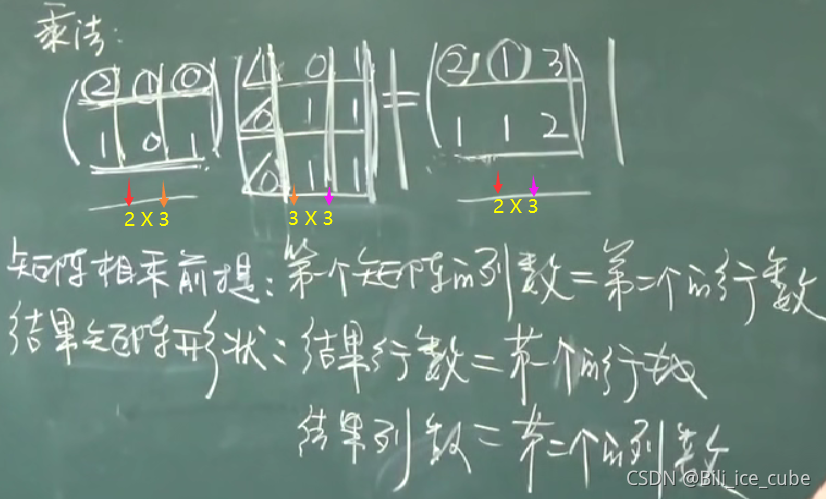 乘法:
(2 1 0 1 0 1 = (2 1 3
1 0 1) 0 1 1 1 1 2)
0 1 1
2 X 3 3 X 3 2 X 3
矩阵相乘前提: 第一个矩阵的列数=第二个的行数
结果矩阵形状: 结果行数=第一个的行数
结果列数=第二个的列数
CSDN @Bili_ice_cube